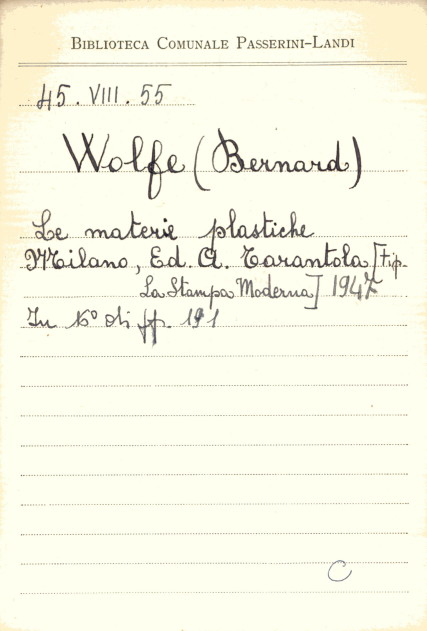 BIBLIOTECA COMUNALE PASSERINI-LANDI
45. VIII. 55
Wolfe (Bernard)
Le materie plastiche
Milano, Ed. A. Tarantola [Tip.
La Stampa Moderna] 1947
In 16° di pp. 191
C